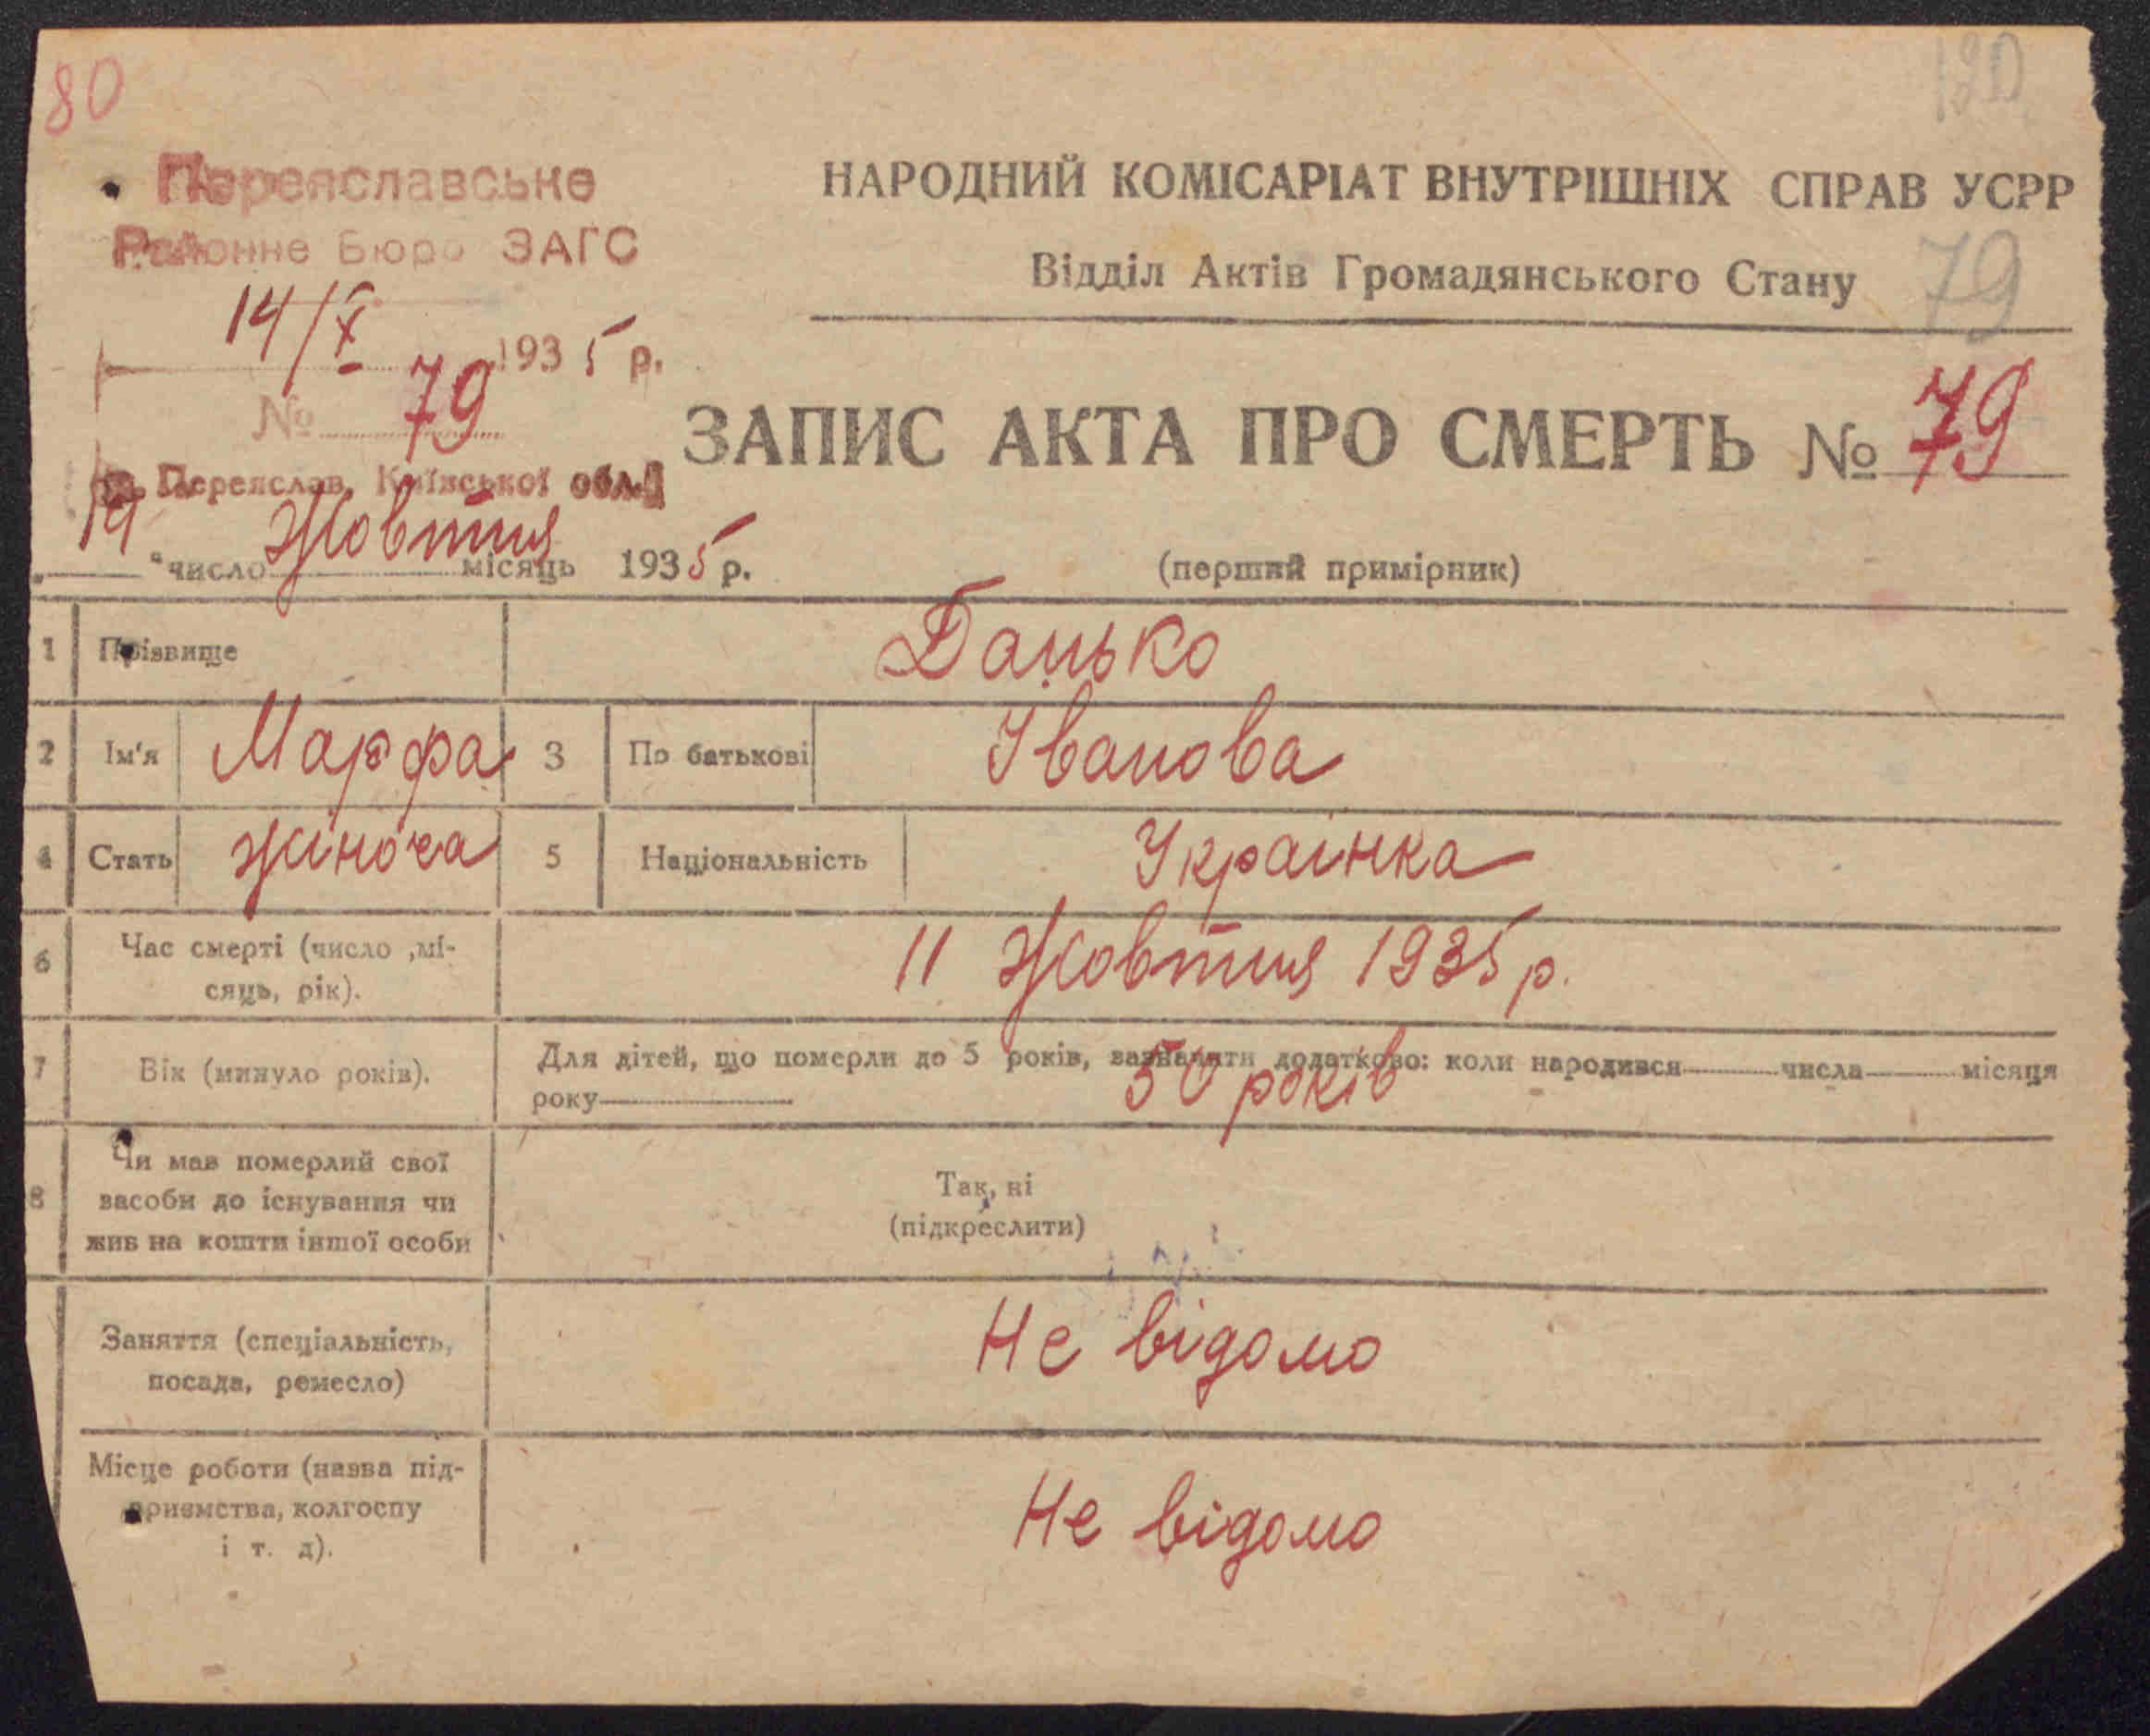 80
120
Переяславське
Районне Бюро ЗАГС
14/X 1935 р.
№ 79
Переяслав, Київської обл.
НАРОДНИЙ КОМІСАРІАТ ВНУТРІШНІХ СПРАВ УСРР
Відділ Актів Громадянського Стану
79
ЗАПИС АКТА ПРО СМЕРТЬ № 79
14 "число Жовтня місяць 1935 р.
(перший примірник)
1 Прізвище Данько
2 Ім'я Марфа 3 По батькові Іванова
4 Стать жіноча 5 Національність Українка
6 Час смерті (число ,мі-
сяць, рік). 11 Жовтня 1935 р.
7 Вік (минуло років). Для дітей, що померли до 5 років, зазначити додатково: коли народився числа місяця
року 50 років
8 Чи мав померлий свої
засоби до існування чи
жив на кошти іншої особи
Так, ні
(підкреслити)
Заняття (спеціальність,
посада, ремесло) Не відомо
Місце роботи (назва під-
приємства, колгоспу
і т. д). Не відомо